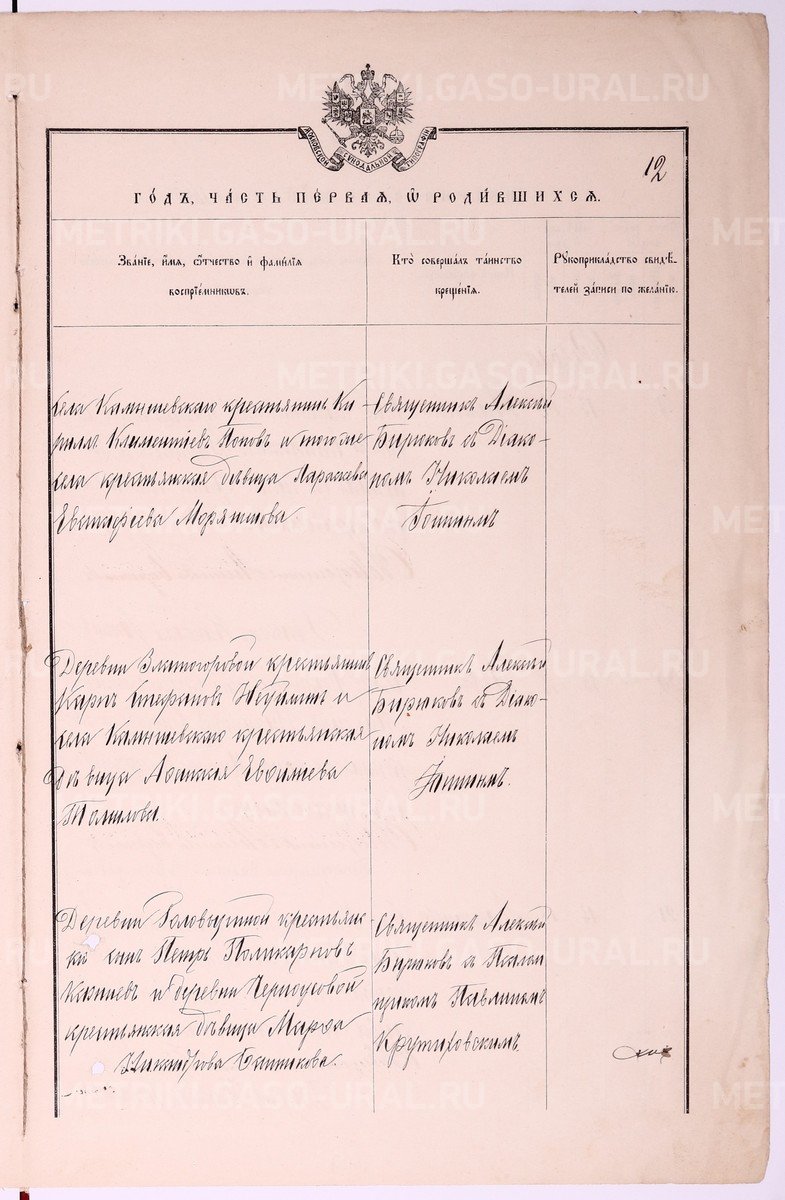 METRIKI.GASO-URAL.RU
МОСКОВСКОЙ СѴНОДАЛЬНОЙ ТИПОГРАФІИ
12
ГО́ДЪ, ЧА́СТЬ ПЕ́РВАЯ, Ѿ РОДИ́ВШИХСЯ.
Зва́нїе, и́мя, ѻ҆́тчество и҆ фами́лїя
воспрїе́мниковъ.
Кто̀ соверша́лъ та́инство
креще́нїя.
Рꙋкоприкла́дство свидѣ́-
телей за́писи по жела́нїю.
Села Камышевскаго крестьянинъ Ки-
риллъ Климентіевъ Поповъ и того же
села крестьянская дѣвица Параскева
Евстафіева
Священникъ Алексѣй
Бирюковъ съ Діако-
номъ Николаемъ
Деревни Златогоровой крестьянинъ
Карпъ Стефановъ и
села Камышевскаго крестьянская
дѣвица Евфиміева
Томилова.
Священникъ Алексѣй
Бирюковъ съ Діако-
номъ Николаемъ
Деревни крестьянс-
кій сынъ Петръ Поликарповъ
и деревни Черноусовой
крестьянская дѣвица Марфа
Никандрова
Священникъ Алексѣй
Бирюковъ съ Псалом-
щикомъ Павлиномъ
Крутиховскимъ.